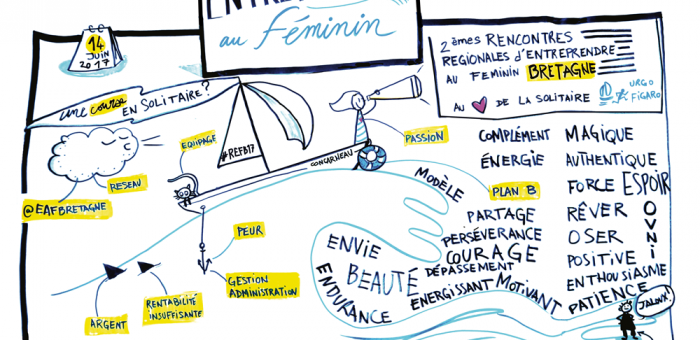 au féminin
14
JUIN
2017
2èmes RENCONTRES
REGIONALES d'ENTREPRENDRE
AU FEMININ BRETAGNE
AU DE LA SOLITAIRE URGO
FIGARO
une course EN SOLITAIRE?
EQUIPAGE
#REFB17
CONCARNEAU
PASSION
RESEAU
@EAFBRETAGNE
PEUR
GESTION
ADMINISTRATION
ARGENT
RENTABILITÉ
INSUFFISANTE
PLAN B
MODÈLE
COMPLÉMENT
ÉNERGIE
PARTAGE
PERSÉVERANCE
COURAGE
DÉPASSEMENT
ENERGISSANT MOTIVANT
ENVIE
BEAUTÉ
ENDURANCE
MAGIQUE
AUTHENTIQUE
FORCE ESPOIR
RÊVER
OSER
POSITIVE
ENTHOUSIASME
PATIENCE
OVNI
JALOUX!